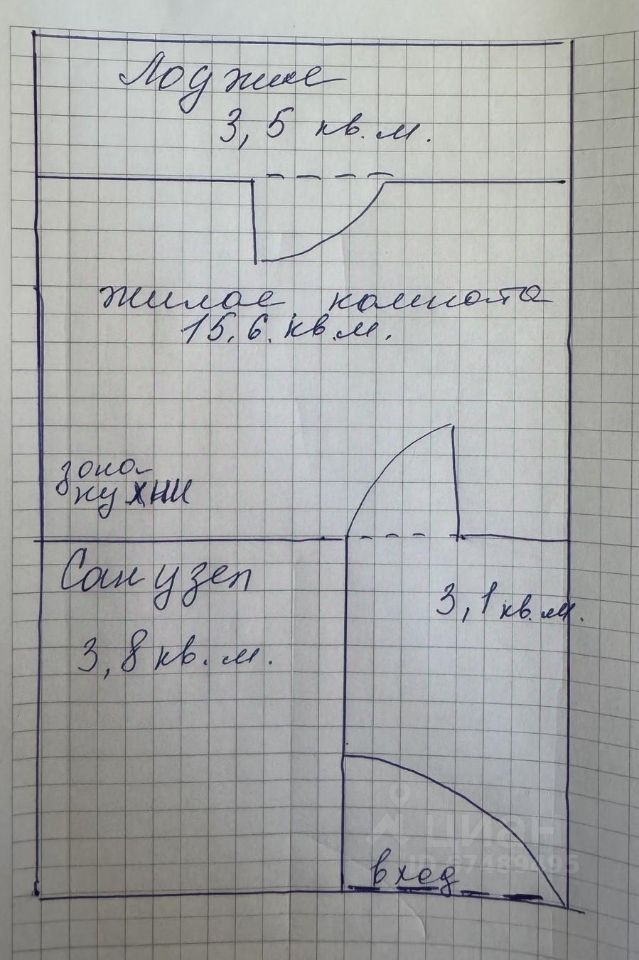 Лоджие
3,5 кв.м.
жилое комната
15,6 кв.м.
зона
кухни
Сан узел
3,8 кв.м.
3,1 кв.м.
вход
циан